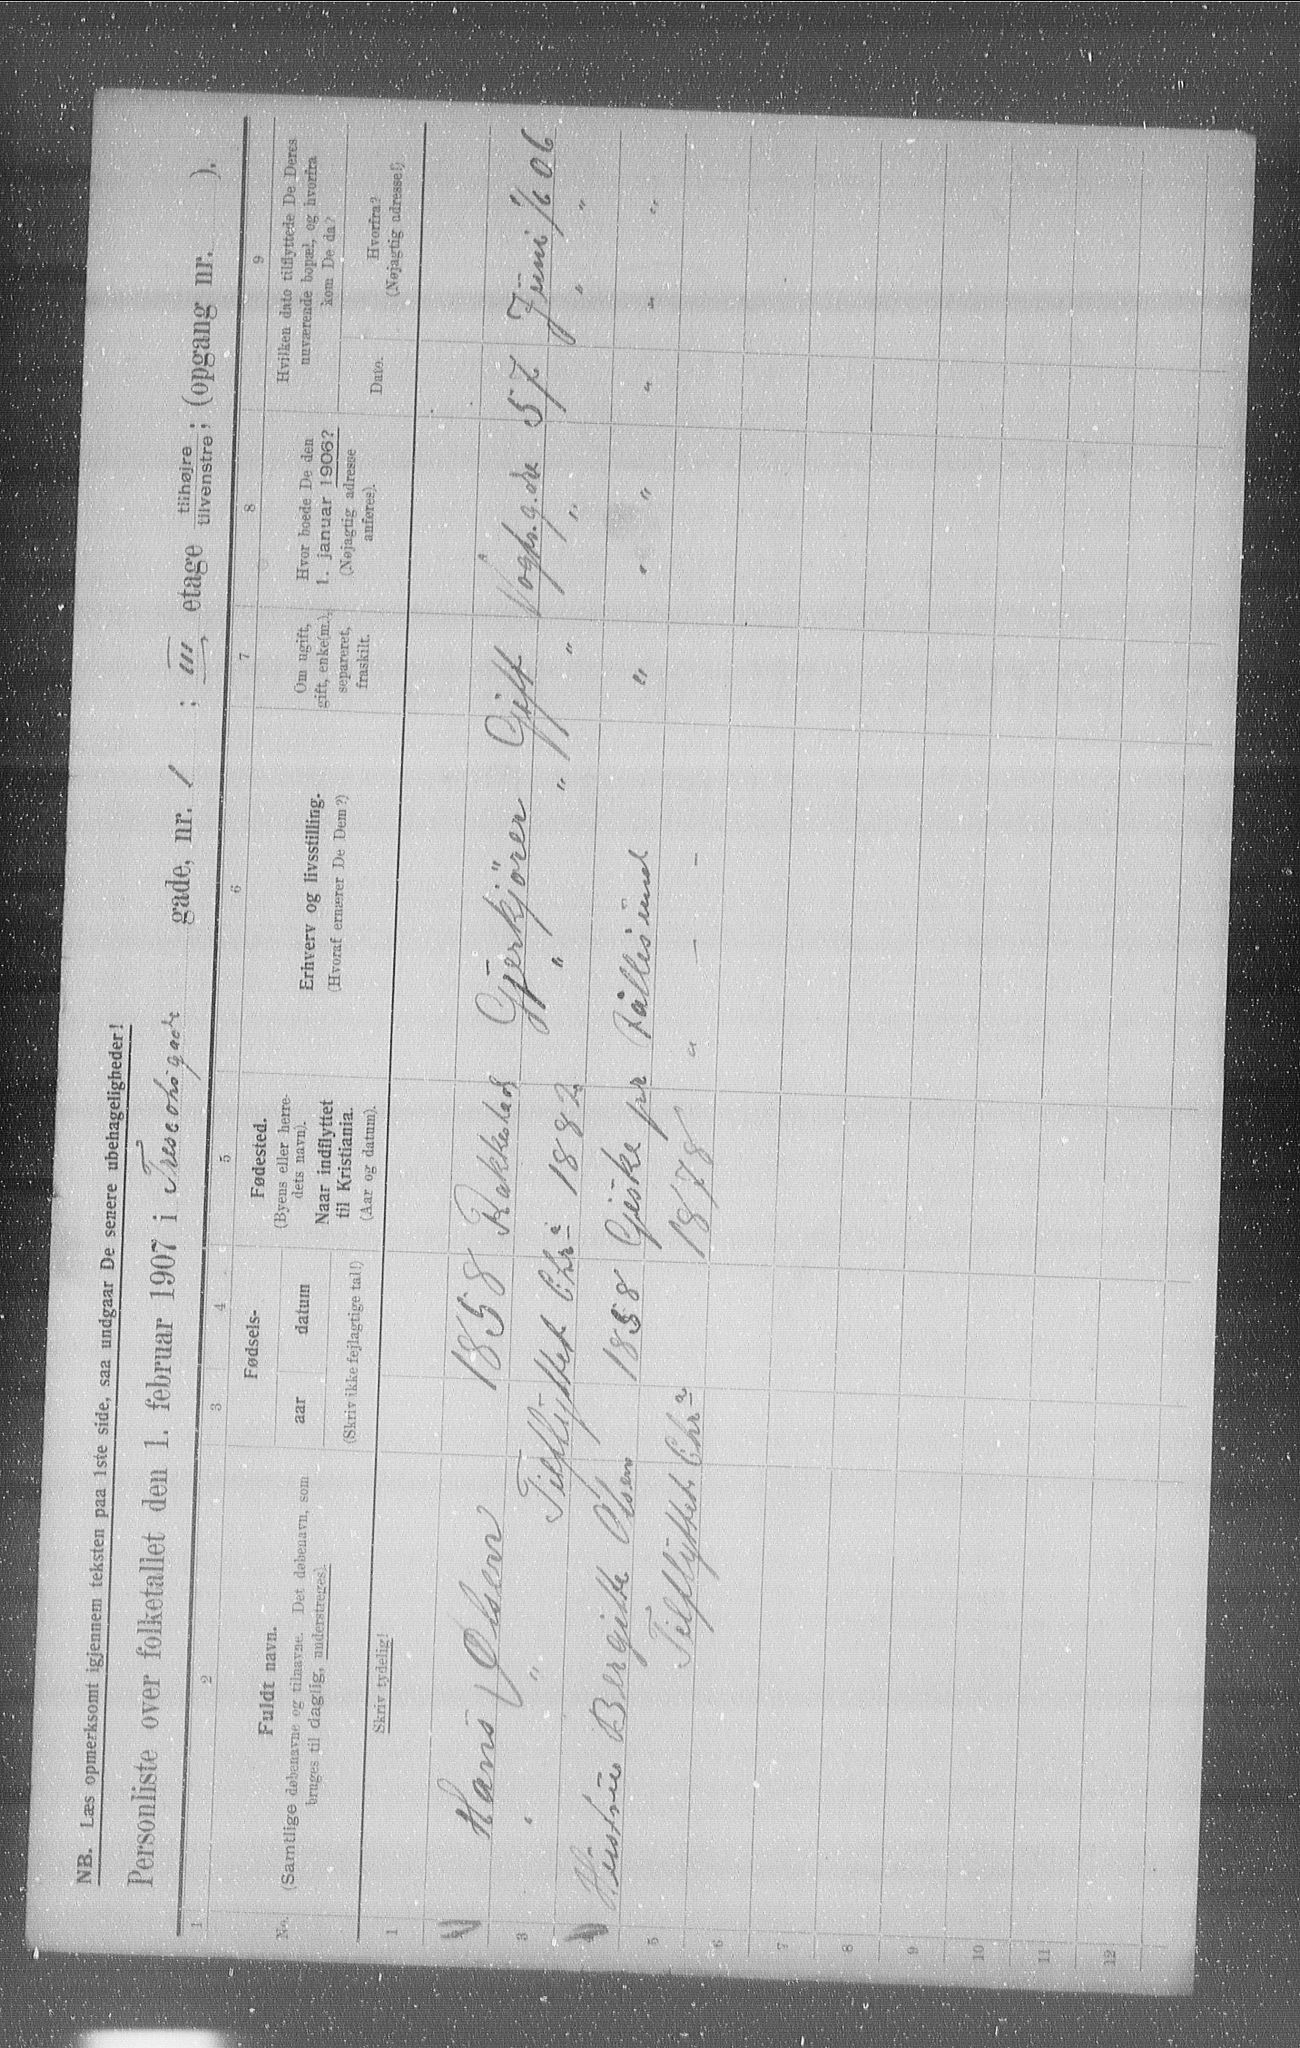 NB. Læs opmerksomt igjennem teksten paa 1ste side, saa undgaar De senere ubehageligheder!
Personliste over folketallet den 1. februar 1907 i Treschowsgade gade, nr. 1 ; III etage tilhøjre tilvenstre ; (opgang nr. ).
1 2 3 4 5 6 7 8 9
No.
Fuldt navn.
(Samtlige døbenavne og tilnavne. Det døbenavn, som
bruges til daglig, understreges).
Skriv tydelig!
Fødsels-
aar datum
(Skriv ikke fejlagtige tal!)
Fødested.
(Byens eller herre-
dets navn).
Naar indflyttet
til Kristiania.
(Aar og datum).
Erhverv og livsstilling.
(Hvoraf ernærer De Dem?)
Om ugift,
gift, enke(m.),
separeret,
fraskilt.
Hvor boede De den
1. januar 1906?
(Nøjagtig adresse
anføres).
Hvilken dato tilflyttede De Deres
nuværende bopæl, og hvorfra
kom De da?
Dato.
Hvorfra?
(Nøjagtig adresse!)
1
Hans Olsen 1858 Rakkestad Gjerkjører Gift 57 Juni 1/6 06
3 " " Tilflyttet Chr.a 1882 " " " " " "
Hustru Bergitte Olsen 1858 Gjeske pr
5 " " " " " "
Tilflyttet Chr.a 1878 " — —
6
7
8
9
10
11
12